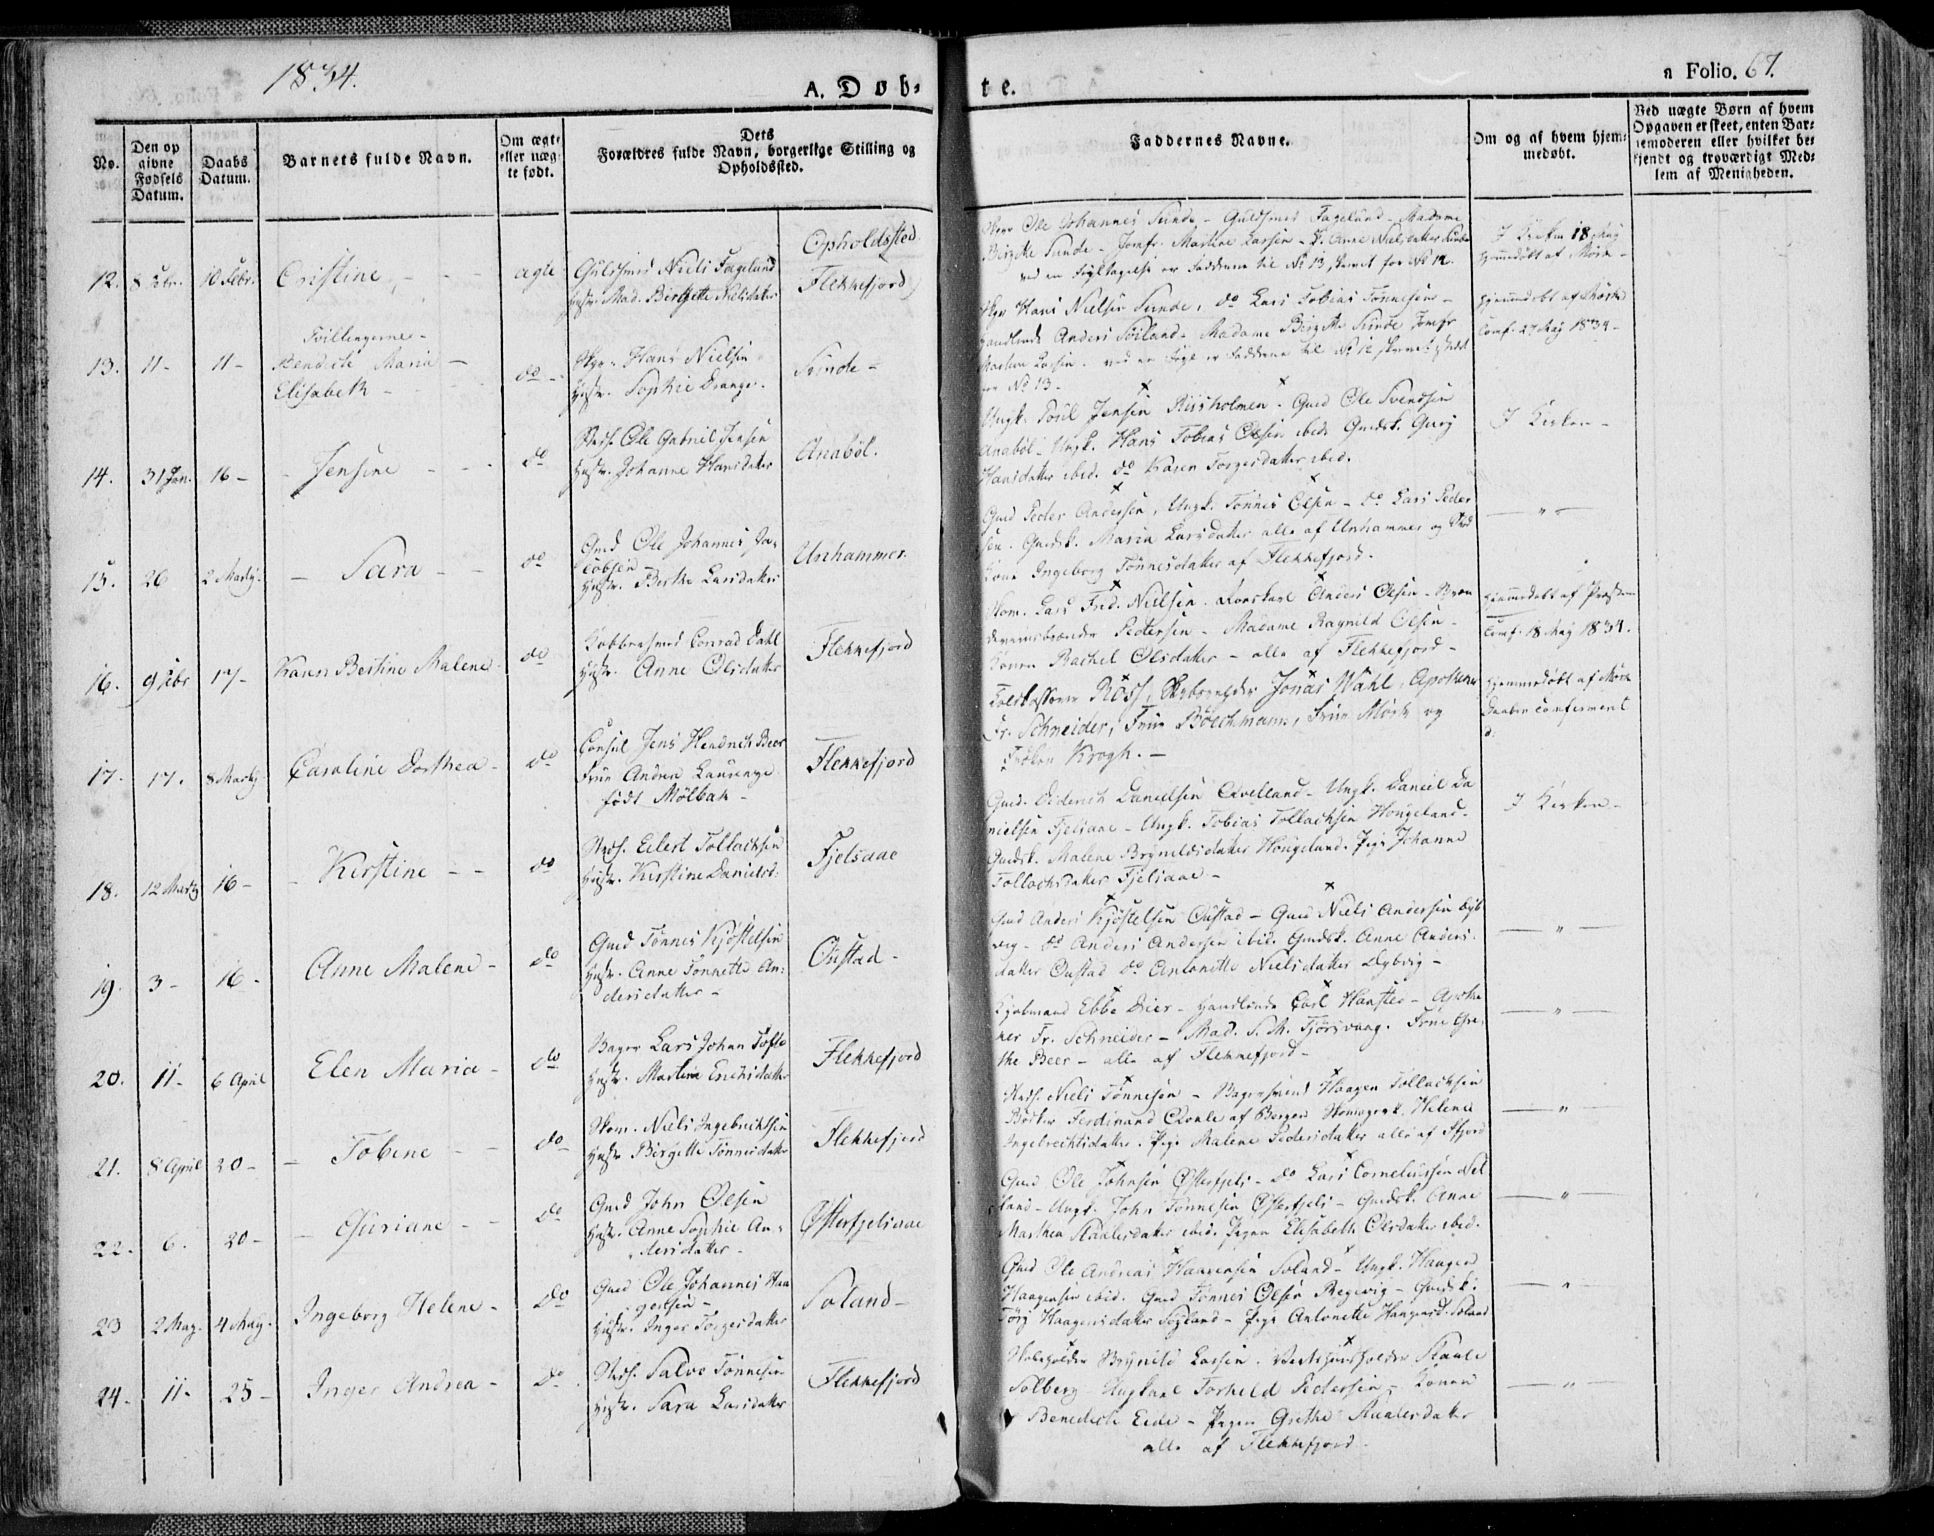 1834.
A. Døb-
te.
n Folio. 67.
No.
Den op
givne
Fødsels
Datum.
Daabs
Datum.
Barnets fulde Navn.
Om ægte
eller uæg-
te født.
Dets
Forældres fulde Navn, borgerlige Stilling og
Opholdssted.
Faddernes Navne.
Om og af hvem hjem-
medøbt.
Ved uægte Børn af hvem
Opgaven er skeet, enten Bar-
nemoderen eller hvilket be-
kjendt og troværdigt Med-
lem af Menigheden.
Opholdssted
12. 8 Febr. 10 Febr. Cristine ægte Guldsmed Niels Fogelund
Hustr. Mad. Birthette Nielsdatter
Flekkefjord
Ole Johannes Sunde - Guldsmed Fagelund - Madame
Birgitte Sunde - Jomfr. Martine Larsen - Anne Nielsdatter Sunde
ved en Fejltagelse er Fadderne til No 13, skrevet for No 12.
I Kirken 18 May
hjemmedøbt af Mørk -
Tvillingerne -
13. 11 - 11 - Bendicte Maria -
Elisabeth -
do - Hans Nielsen
Hustr. Sophie Drange.
Sunde -
Hans Nielsen Sunde, do Lars Tobias Tønnesen -
Handlende Anders Søiland - Madame Birgitte Sunde Jomfr
Martine Larsen. ved en Fejl er Fadderne til No 12 skrevet
No 13 -
hjemmedøbt af
Conf. 27 May 1834 -
14. 31 Jan. 16 - Jensine do Ole Gabriel Jensen
Hustr. Johanne Hansdatter
Anabøl.
Ungk. Poul Jensen Riisholmen. Gmd Ole Svendsen
Anabøl - Ungk. Hans Tobias Olsen ibid. Gmdsk. Gurj
Hansdatter ibid. do Karen Torgersdatter ibid.
I Kirken -
15. 26 2 Marty. Sara do Gmd Ole Johannes Ja-
cobsen -
Hustr. Berthe Larsdatter
Unhammer.
Gmd Peder Andersen, Ungk. Tønnes Olsen - do Lars Peder
sen. Gmdsk. Maria Larsdatter alle af Unhammer og
Kone Ingeborg Tønnesdatter af Flekkefjord.
— " —
16. 9 Febr 17 - Karen Bertine Malene do Kobbersmed Conrad Dahl
Hustr. Anne Olsdatter
Flekkefjord
Skom. Lars Fred. Nielsen. Anders Olsen - Bræn
deviinsbrænder Pedersen - Madame Ragnild Olsen -
Konen Rachel Olsdatter - alle af Flekkefjord -
hjemmedøbt af Præsten
Conf. 18 May 1834.
17. 17. 8 Marty. Caroline Dorthea - do Consul Jens Hendrich Beer
Frue Andrea Laurenze
født Mølbak -
Flekkefjord
Toldkasserer Ross, Jonas Wahl, Apotheker
Fr. Schneider, Frue Bøeckmann, Frue Mørk og
Frøken Krogh. -
hjemmedøbt af Mørk
Daaben confermeret
18. 12 Marty 16 - Kirstine - - do Eilert Tollachsen
Hustr. Kirstine Danielsd:
Fjelsaae
Gmd. Diderich Danielsen Qvelland - Ungk. Daniel Da
nielsen Fjelsaae - Ungk. Tobias Tollachsen Hougeland -
Gmdsk. Malene Brynildsdatter Hougeland. Pige Johanne
Tollachsdatter Fjelsaae -
I Kirken -
19. 3 - 16 - Anne Malene - do Gmd Tønnes Kjøstelsen
Hustr. Anne Tønnette An-
dersdatter -
Oustad -
Gmd Anders Kjøstelsen Oustad - Gmd Niels Andersen Dyb
vig - do Anders Andersen ibid. Gmdsk. Anne Anders-
datter Oustad do Antonette Nielsdatter Dybvig -
— " —
20. 11 - 6 April Elen Maria - do Bager Lars Johan Tofte
Hustr. Martine Erichsdatter
Flekkefjord
Kjøbmand Ebbe Beer - Handlende Carl Hansteo - Apothe
ker Fr. Schneider - Mad. S. M. Fjørsvaag. Frue Gre-
the Beer - alle af Flekkefjord -
— " —
21. 8 April 20 - Tobine do Skom. Niels Ingebrichtsen
Hustr Birgette Tønnesdatter
Flekkefjord
Niels Tønnesen - Bagersvend Haagen Tollachsen
Bødker Ferdinand af Bergen Helene
Ingebrechtsdatter. Pige Malene Pedersdatter alle af Ffjord
— " —
22. 6. 20 - Guriane - - do Gmd John Olsen
Hustr. Anne Sophie An-
dersdatter -
Østerfjelsaae
Gmd Ole Johnsen Østerfjels - do Lars Corneliussen Net
land - Ungk. John Tønnesen Østerfjels - Gmdsk. Anne
Marthea Staalesdatter ibid. Pigen Elisabeth Olsdatter ibid.
— " —
23 2 May. 4 May. Ingeborg Helene - Do Gmd Ole Johannes Haa
gensen -
Hustr. Inger Torgersdatter
Soland -
Gmd Ole Andreas Haagensen Soland - Ungk. Haagen
Haagensen ibid. Gmd Tønnes Olsen Regevig - Gmdsk.
Tørj Haagensdatter Søyland - Pige Antonette Haagensd. Soland
— " —
24. 11 - 25 - Inger Andrea - Do Salve Tønnesen
Hustr. Sara Larsdatter
Flekkefjord
Skoleholder Brynild Larsen. Vertshuusholder Staale
Solberg - Ungkarl Torkeld Pedersen - Konen
Benedicte Eide - Pigen Grethe Staalesdatter
alle af Flekkefjord.
— " —